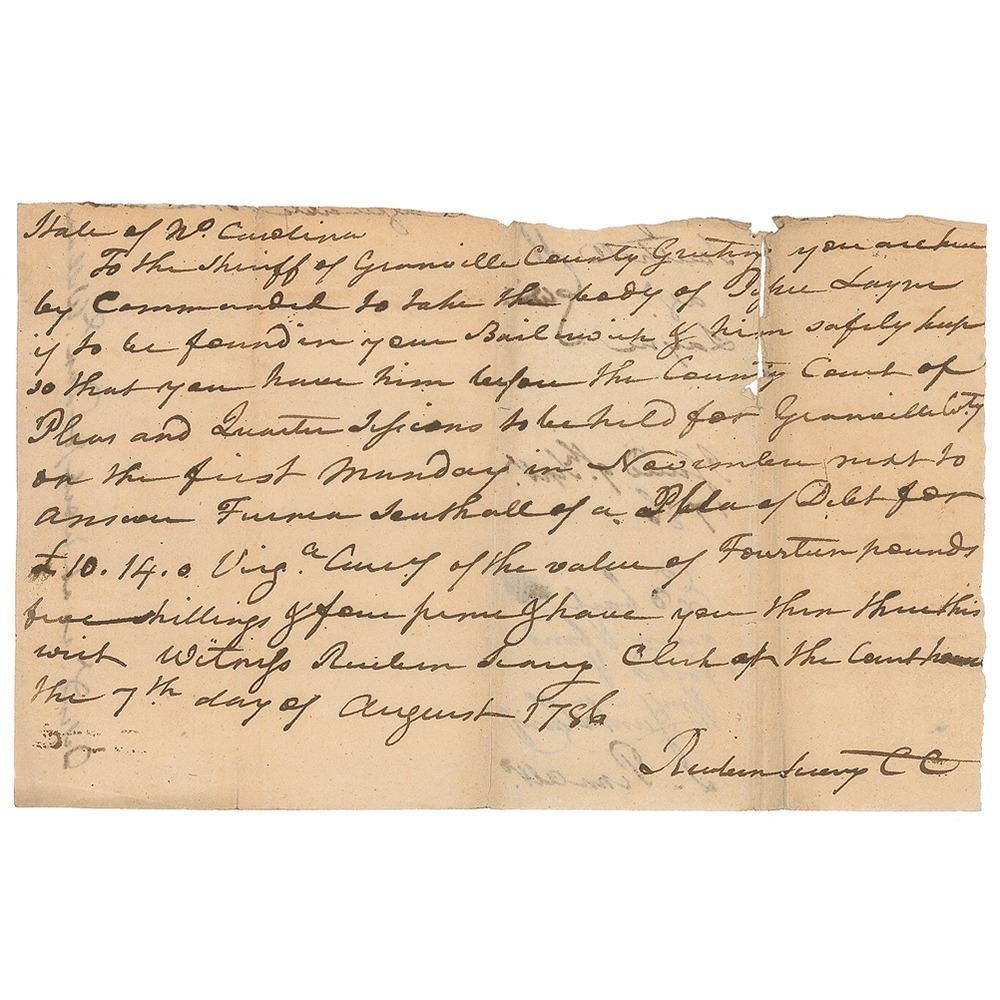 State of No. Carolina
To the Sheriff of Granville County Greeting you are here
by Commanded to take the body of Layne
if to be found in your Bailiwick & him safely keep
so that you have him before the County Court of
Pleas and Quarter Sessions to be held for Granville Coty
on the first Munday in November next to
answer Furna Southall of a Plea of Debt for
£10.14.0 Virga. Curcy of the value of Fourteen pounds
five shillings & four pence & have you then there this
writ Witness Reuben Searcy Clerk of the Court
the 7th day of August 1786
Reuben Searcy CC